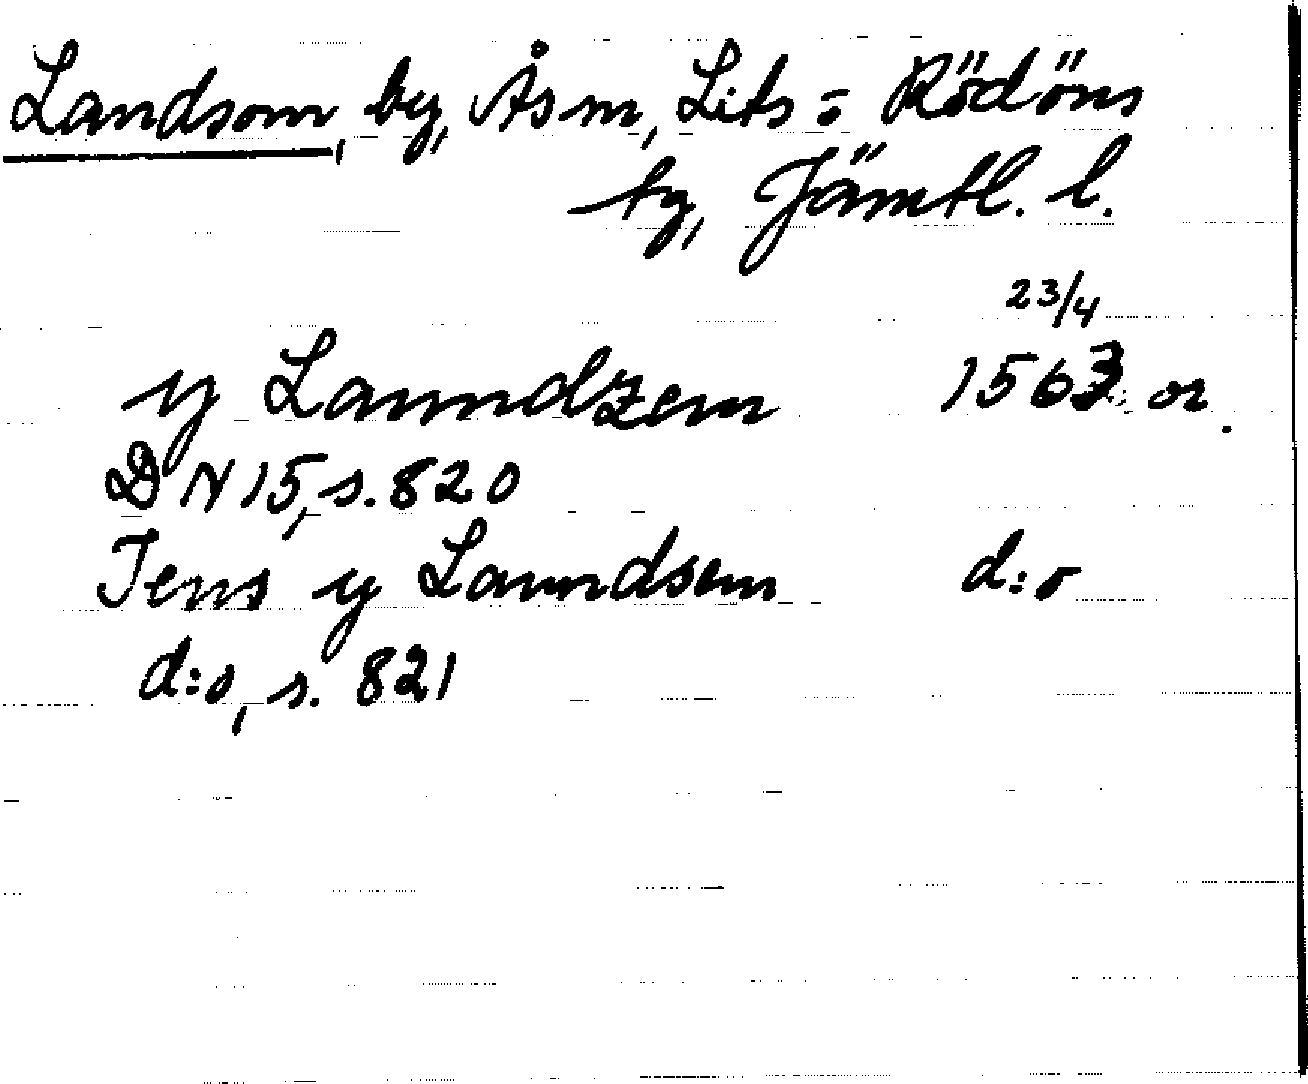 Landsom, by, Ås sn, Lits o Rödöns
tg, Jämtl. l.
23/4
y Lanndzem 1563 or.
DN 15, s. 820
Jens y Lanndsem d:o
d:o, s. 821